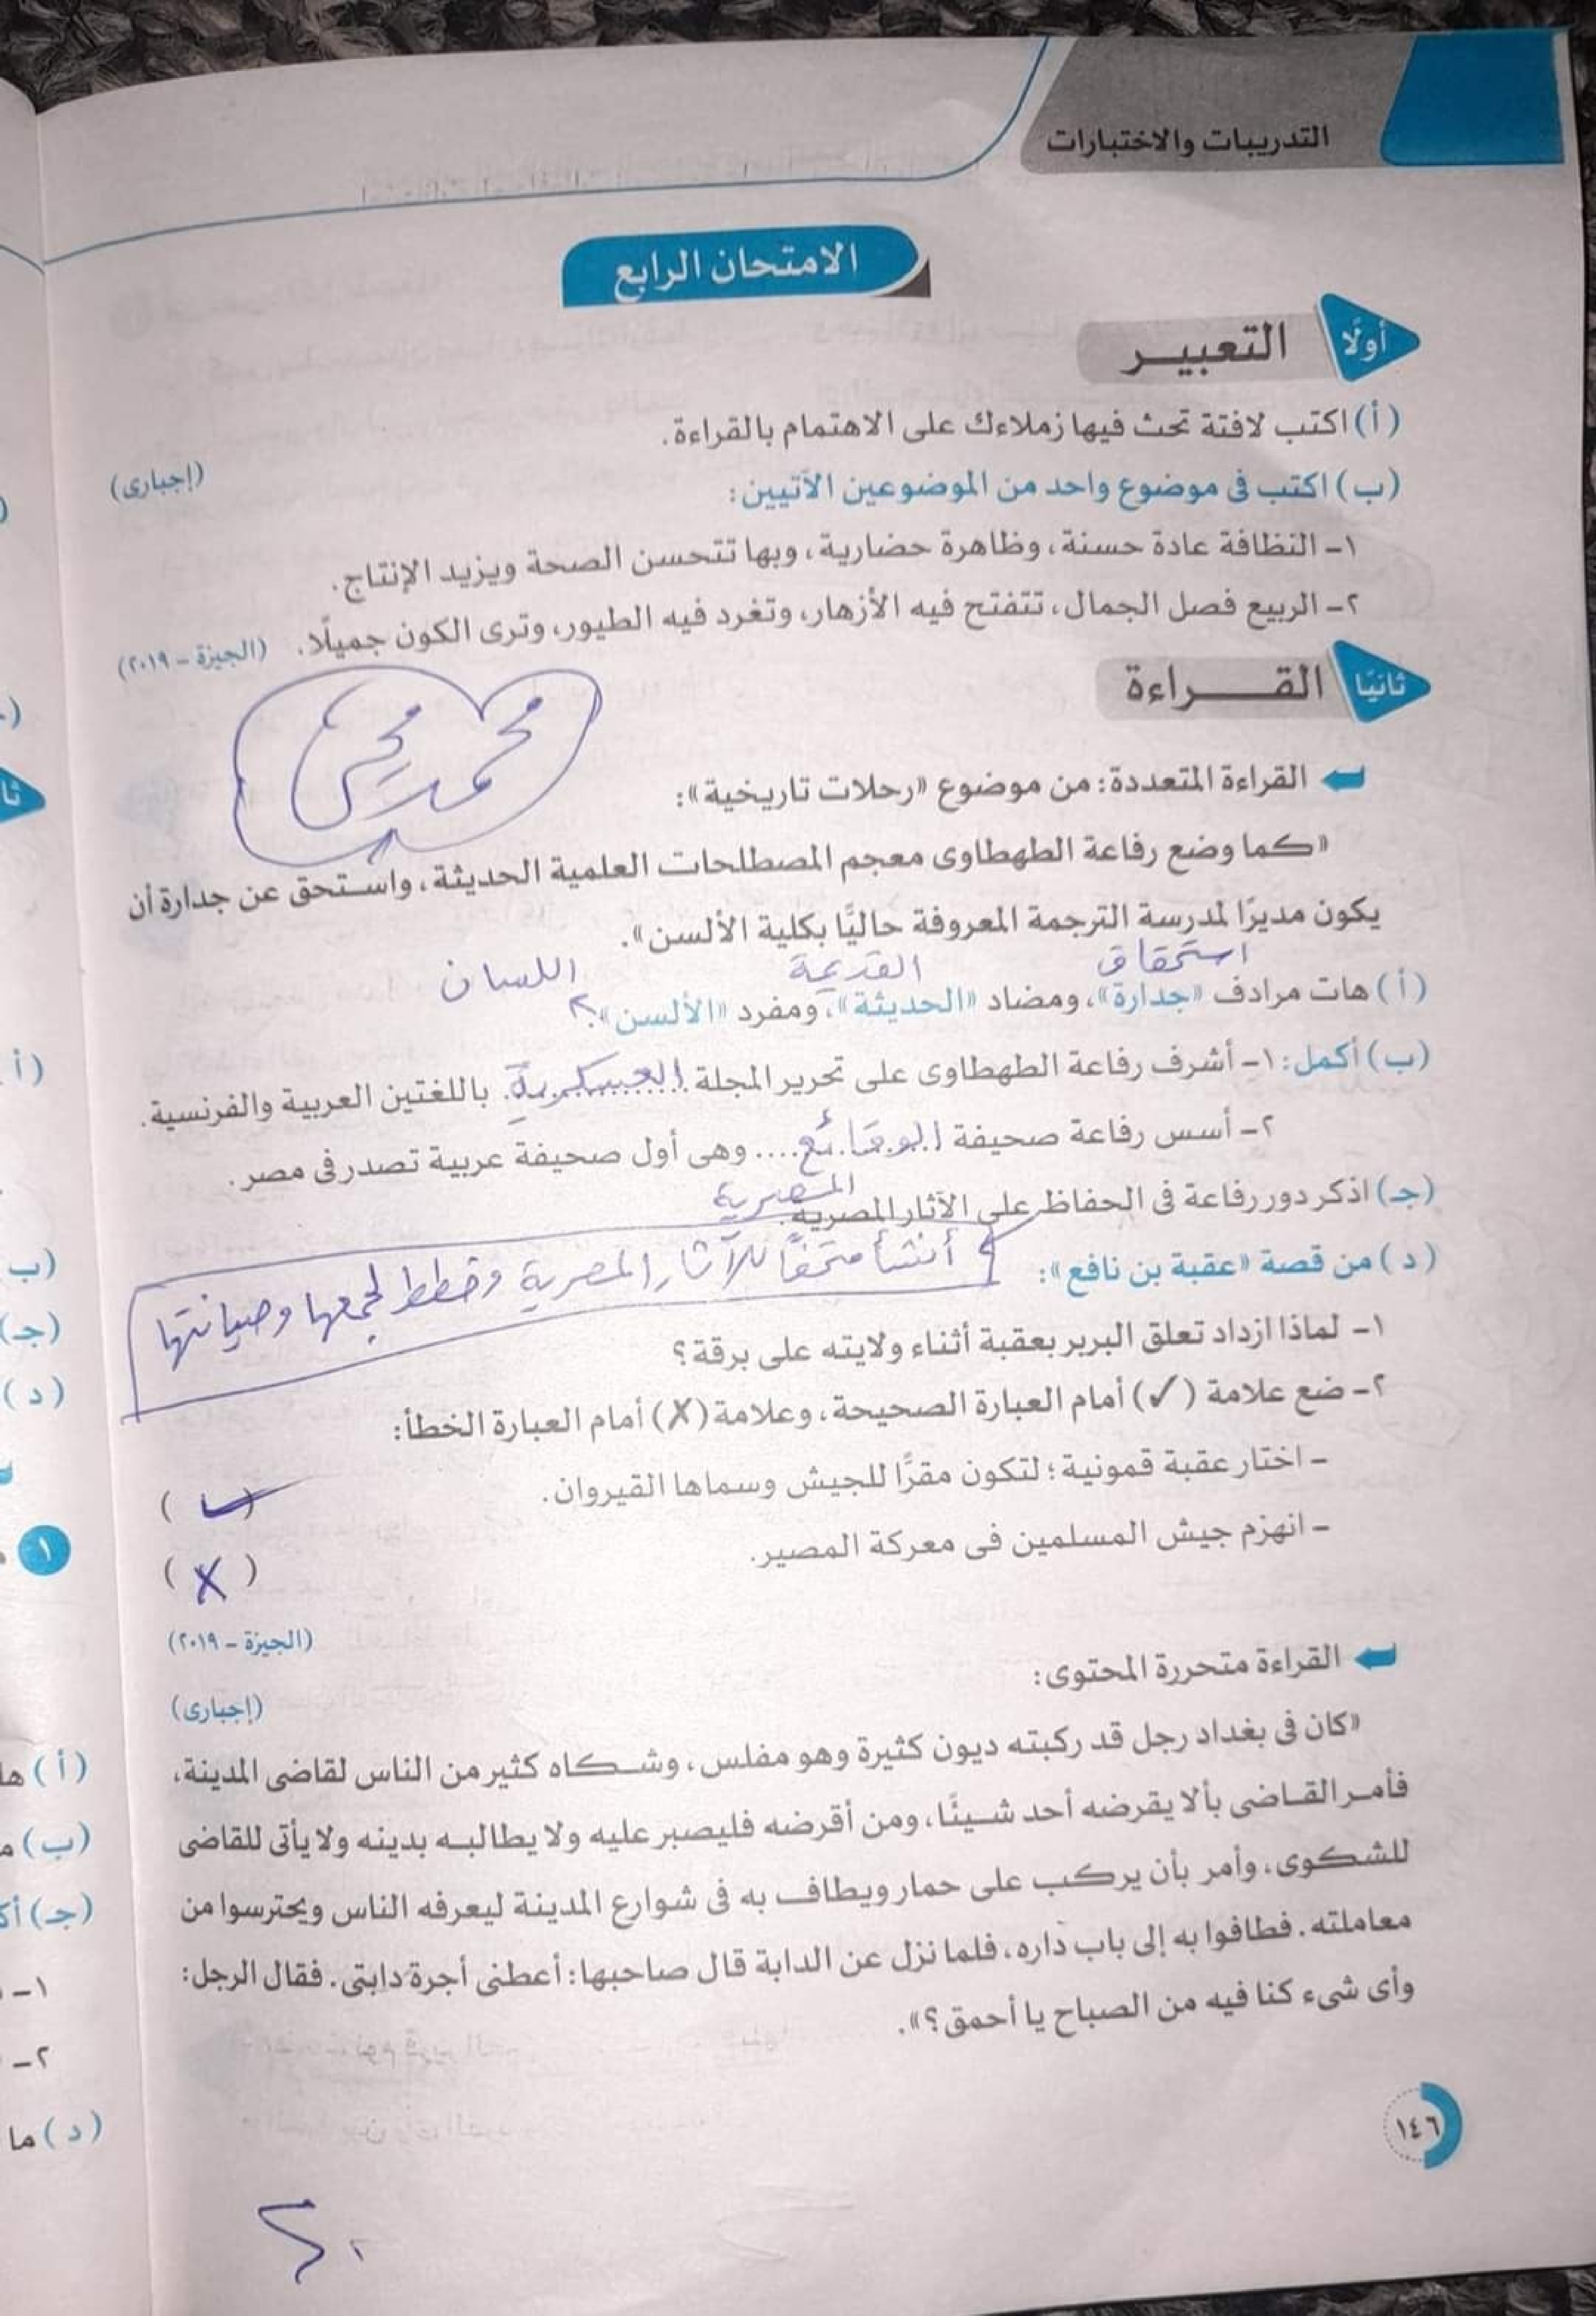 التدريبات والاختبارات
الامتحان الرابع
أولًا
التعبيـر
(أ) اكتب لافتة تحث فيها زملاءك على الاهتمام بالقراءة.
(ب) اكتب فى موضوع واحد من الموضوعين الآتيين: (إجبارى)
١- النظافة عادة حسنة، وظاهرة حضارية، وبها تتحسن الصحة ويزيد الإنتاج.
٢- الربيع فصل الجمال، تتفتح فيه الأزهار، وتغرد فيه الطيور، وترى الكون جميلًا. (الجيزة - ٢٠١٩)
ثانيًا
القـــراءة
محمد يحيى
القراءة المتعددة: من موضوع «رحلات تاريخية»:
«كما وضع رفاعة الطهطاوى معجم المصطلحات العلمية الحديثة، واستحق عن جدارة أن
يكون مديرًا لمدرسة الترجمة المعروفة حاليًا بكلية الألسن».
استحقاق القديمة اللسان
(أ) هات مرادف «جدارة»، ومضاد «الحديثة»، ومفرد «الألسن».
(ب) أكمل: ١- أشرف رفاعة الطهطاوى على تحرير المجلة العسكرية باللغتين العربية والفرنسية.
٢- أسس رفاعة صحيفة الوقائع .... وهى أول صحيفة عربية تصدر فى مصر.
المصرية
(جـ) اذكر دور رفاعة فى الحفاظ على الآثار المصرية.
أنشأ متحفًا للآثار المصرية وخطط لجمعها وصيانتها
(د) من قصة «عقبة بن نافع»:
١- لماذا ازداد تعلق البربر بعقبة أثناء ولايته على برقة؟
٢- ضع علامة (✓) أمام العبارة الصحيحة، وعلامة (✗) أمام العبارة الخطأ:
- اختار عقبة قمونية؛ لتكون مقرًا للجيش وسماها القيروان. (✓)
- انهزم جيش المسلمين فى معركة المصير. (✗)
(الجيزة - ٢٠١٩)
القراءة متحررة المحتوى: (إجبارى)
«كان فى بغداد رجل قد ركبته ديون كثيرة وهو مفلس، وشكاه كثير من الناس لقاضى المدينة،
فأمر القاضى بألا يقرضه أحد شيئًا، ومن أقرضه فليصبر عليه ولا يطالبه بدينه ولا يأتى للقاضى
للشكوى، وأمر بأن يركب على حمار ويطاف به فى شوارع المدينة ليعرفه الناس ويحترسوا من
معاملته. فطافوا به إلى باب داره، فلما نزل عن الدابة قال صاحبها: أعطنى أجرة دابتى. فقال الرجل:
وأى شىء كنا فيه من الصباح يا أحمق؟».
١٤٦
(أ
(ب
(جـ)
(د)
١
(أ) ها
(ب) م
(جـ) أك
١-
٢-
(د) ما